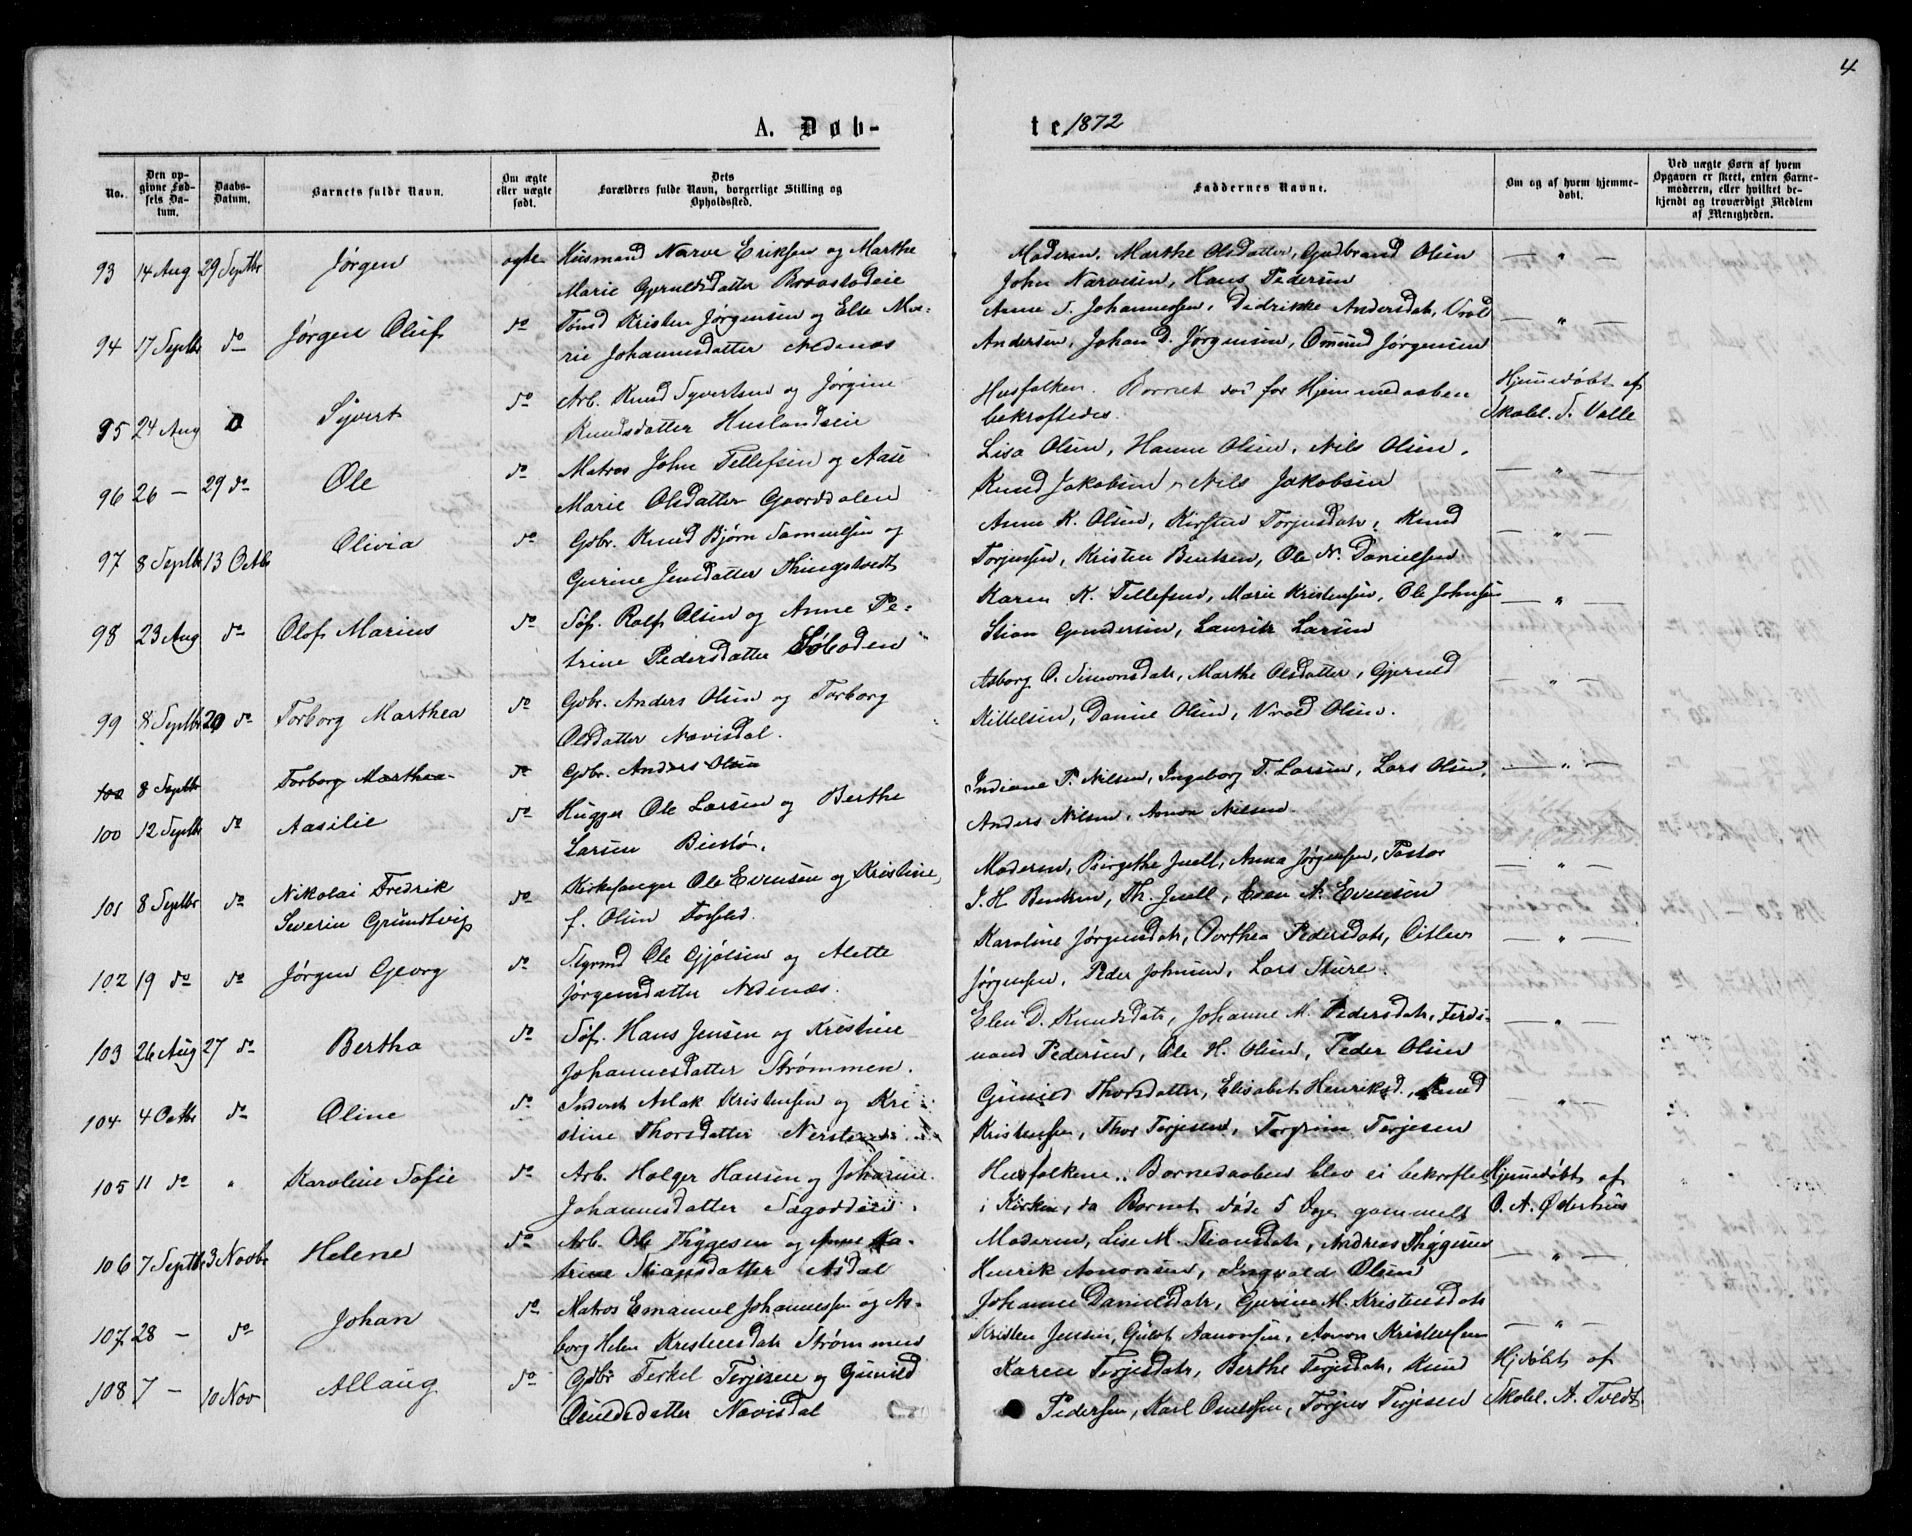 4
A. Døb-
te 1872
No.
Den opgivne Fødsels Datum.
Daabs-Datum.
Barnets fulde Navn.
Om ægte eller uægte født.
Dets Forældres fulde Navn, borgerlige Stilling og Opholdssted.
Faddernes Navne.
Om og af hvem hjemmedøbt.
Ved uægte Børn af hvem Opgaven er skeet, enten Barnemoderen, eller hvilket bekjendt og troværdigt Medlem af Menigheden.
93 14 Aug 29 Septbr Jørgen ægte Husmand Narve Eriksen og Marthe
Marie Gjeruldsdatter
Moderen, Marthe Olsdatter, Gudbrand Olsen — " —
John Narvesen, Hans Pedersen
94 17 Septbr do Jørgen Oluf do Tømd Kristen Jørgensen og Else Ma-
rie Johannesdatter Nedenæs
Anne S. Johannessen, Didrikke Andersdatr, Vrold — " —
Andersen, Johan D. Jørgensen, Osmund Jørgensen
95 24 Aug 0 Syvert do Arb. Knud Syvertsen og Jørgine
Knudsdatter Huslandseie
Husfolken. Barnet død før Hjemmedaaben Hjemmedøbt af
bekræftedes. Skolel. S. Valle
96 26 — 29 do Ole do Matros John Tellefsen og Aase
Marie Olsdatter Gaarddalen
Lisa Olsen, Hanne Olsen, Nils Olsen, — " —
Knud Jakobsen, Nils Jakobsen
97 8 Septbr 13 Octbr Olivia do Gdbr. Knud Bjørn Samuelsen og
Gurine Jensdatter Thingstvedt
Anne K. Olsen, Kirsten Torjusdatr, Knud — " —
Torjussen, Kristen Bentsen, Ole N. Danielsen
98 23 Aug do Olof Marius do Søf. Rolf Olsen og Anne Pe-
trine Pedersdatter Søboden
Karen K. Tellefsen, Marie Kristensen, Ole Johnsen — " —
Stian Gundersen, Lauritz Larsen
99 8 Septbr 20 do Torborg Marthea do Gdbr. Anders Olsen og Torborg
Olsdatter Navisdal.
Asborg O. Simonsdatr, Marthe Olsdatter, Gjeruld — " —
Kittelsen, Daniel Olsen, Vrold Olsen.
100 8 Septbr Torborg Marthea do Gdbr. Anders Olsen
100 12 Septbr do Aasilie do Hugger Ole Larsen og Berthe
Larsen Biestø.
Indiane P. Nilsen, Ingeborg T. Larsen, Lars Olsen, — " —
Anders Nilsen, Aanon Nilsen.
101 8 Septbr do Nikolai Fredrik do Kirkesanger Ole Evensen og Kristine,
Severin Grundtvig f. Olsen
Moderen, Birgethe Juell, Anna Jørgensen, Pastor — " —
J. H. Bentsen, Th. Juell, Even N. Evensen
102 19 do do Jørgen Georg do Styrmd Ole Gjølsen og Alette
Jørgensdatter Nedenæs.
Karoline Jørgensdatr, Dorthea Pedersdatr, Ditlev — " —
Jørgensen, Peder Johnsen, Lars Sture.
103 26 Aug 27 do Bertha do Søf. Hans Jensen og Kristine
Johannesdatter Strømmen.
Elen D. Knudsdatr, Johanne M. Pedersdatr, Ferdi- — " —
nand Pedersen, Ole H. Olsen, Peder Olsen
104 4 Octbr do Oline do Inderst Aslak Kristensen og Kri-
stine Thorsdatter
Gunild Thorsdatter, Elisabet Henriksd., Knud "
Kristensen, Thor Terjesen, Torgrim Terjesen
105 11 do " Karoline Sofie do Arb. Holger Hansen og Johanne
Johannesdatter
Husfolkene. Barnedaaben blev ei bekræftet Hjemmedøbt af
i Kirken, da Barnet døde 5 Dage gammelt O. A. Øderhus
106 7 Septbr 3 Novbr Helene do Arb. Ole Thygesen og Anne Ka-
trine Stiansdatter Asdal
Moderen, Lise M. Stiansdatr, Andreas Thygesen — " —
Henrik Aanonsen, Ingvald Olsen
107 28 — do Johan do Matros Emanuel Johannessen og As-
borg Helen Kristensdatr Strømmen
Johanne Danielsdatr, Gurine M. Kristensdatr
Kristen Jensen, Aanonsen, Aanon Kristensen — " —
108 7 — 10 Nov Allaug do Gdbr Terkel Terjesen og Gunild
Osuldsdatter Navisdal
Karen Terjesdatr, Berthe Terjesdatr, Knud Hjdøbt af
Pedersen, Karl Osuldsen, Torjus Terjesen Skolel. A. Tvedt